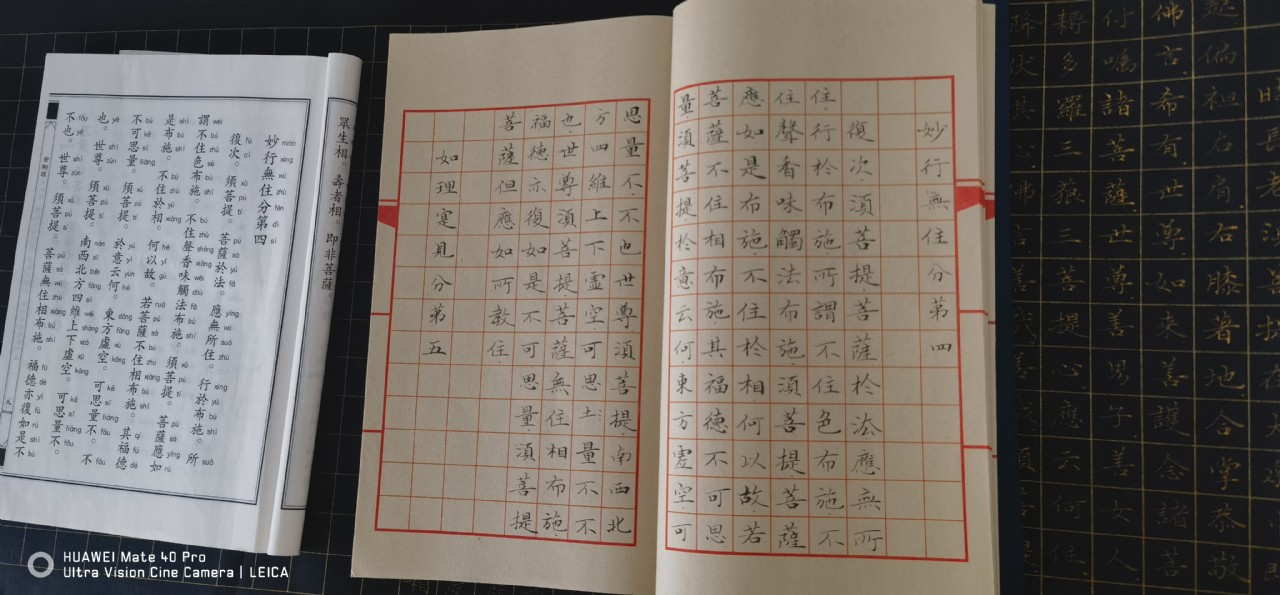 起偏袒右肩右膝著地合掌恭敬
佛言希有世尊如來善護念諸菩
付囑諸菩薩世尊善男子善女人
耨多羅三藐三菩提心應云何住
降伏其心佛言善哉善哉須菩
妙行無住分第四
復次須菩提菩薩於法應無所
住行於布施所謂不住色布施不
住聲香味觸法布施須菩提菩薩
應如是布施不住於相何以故若
菩薩不住相布施其福德不可思
量須菩提於意云何東方虛空可
思量不不也世尊須菩提南西北
方四維上下虛空可思土量不不
也世尊須菩提菩薩無住相布施
福德亦復如是不可思量須菩提
菩薩但應如所教住
如理寔見分第五
眾生相。壽者相。即非菩薩。
妙行無住分第四
復次。須菩提。菩薩於法。應無所住。行於布施。所
謂不住色布施。不住聲香味觸法布施。須菩提。菩薩應如
是布施。不住於相。何以故。若菩薩不住相布施。其福德
不可思量。須菩提。於意云何。東方虛空。可思量不。不
也。世尊。須菩提。南西北方四維上下虛空。可思量不。
不也。世尊。須菩提。菩薩無住相布施。福德亦復如是不
金剛經
九
HUAWEI Mate 40 Pro
Ultra Vision Cine Camera | LEICA